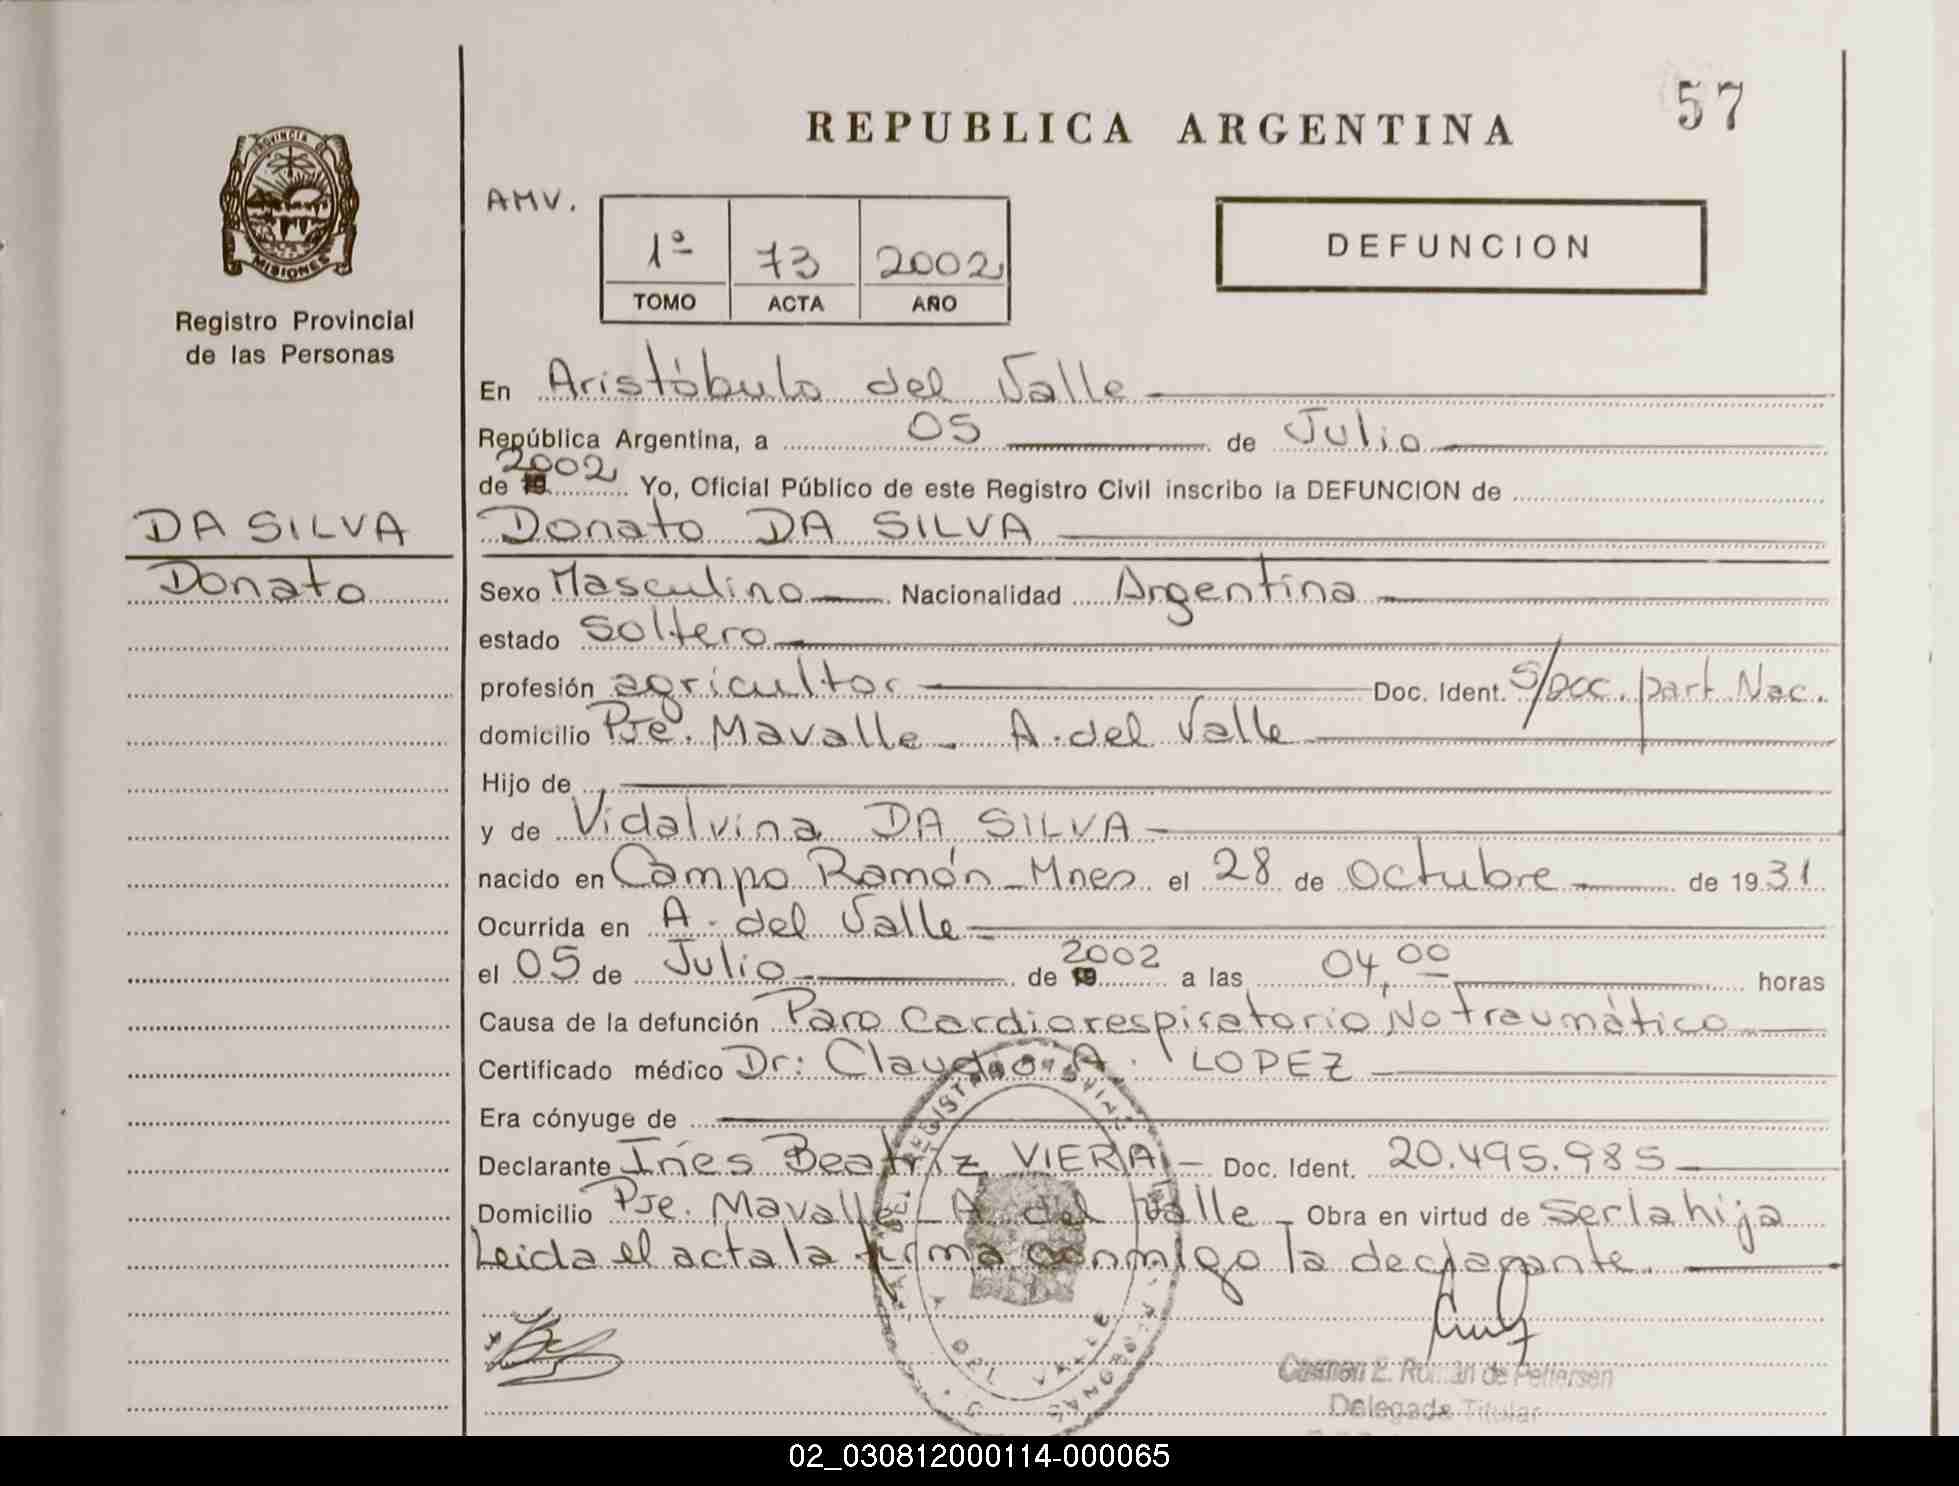 57
REPUBLICA ARGENTINA
PROVINCIA DE
MISIONES
Registro Provincial
de las Personas
AMV.
1ª 73 2002
TOMO ACTA AÑO
DEFUNCION
En Aristóbulo del Valle
República Argentina, a 05 de Julio
de 19 2002 Yo, Oficial Público de este Registro Civil inscribo la DEFUNCION de
DA SILVA
Donato
Donato DA SILVA
Sexo Masculino Nacionalidad Argentina
estado Soltero
profesión agricultor Doc. Ident. S/Doc. part Nac.
domicilio Pje. Mavalle - A. del Valle
Hijo de
y de Vidalvina DA SILVA
nacido en Campo Ramón - Mnes el 28 de Octubre de 1931
Ocurrida en A. del Valle
el 05 de Julio de 19 2002 a las 04,00 horas
Causa de la defunción Paro Cardiorespiratorio No traumático
Certificado médico Dr: Claudio A. LOPEZ
Era cónyuge de
Declarante Inés Beatriz VIERA - Doc. Ident. 20.495.985
Domicilio Pje. Mavalle - A del Valle - Obra en virtud de ser la hija
Leida el acta la firma conmigo la declarante
DEL VALLE
de Pettersen
Delegada Titular
02_030812000114-000065